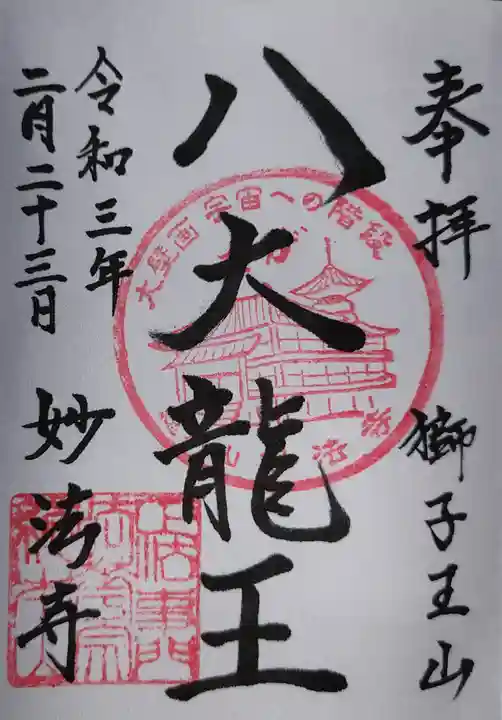 奉拝
獅子王山
八大龍王
大壁画 宇宙への階段
令和三年
二月二十三日
妙法寺